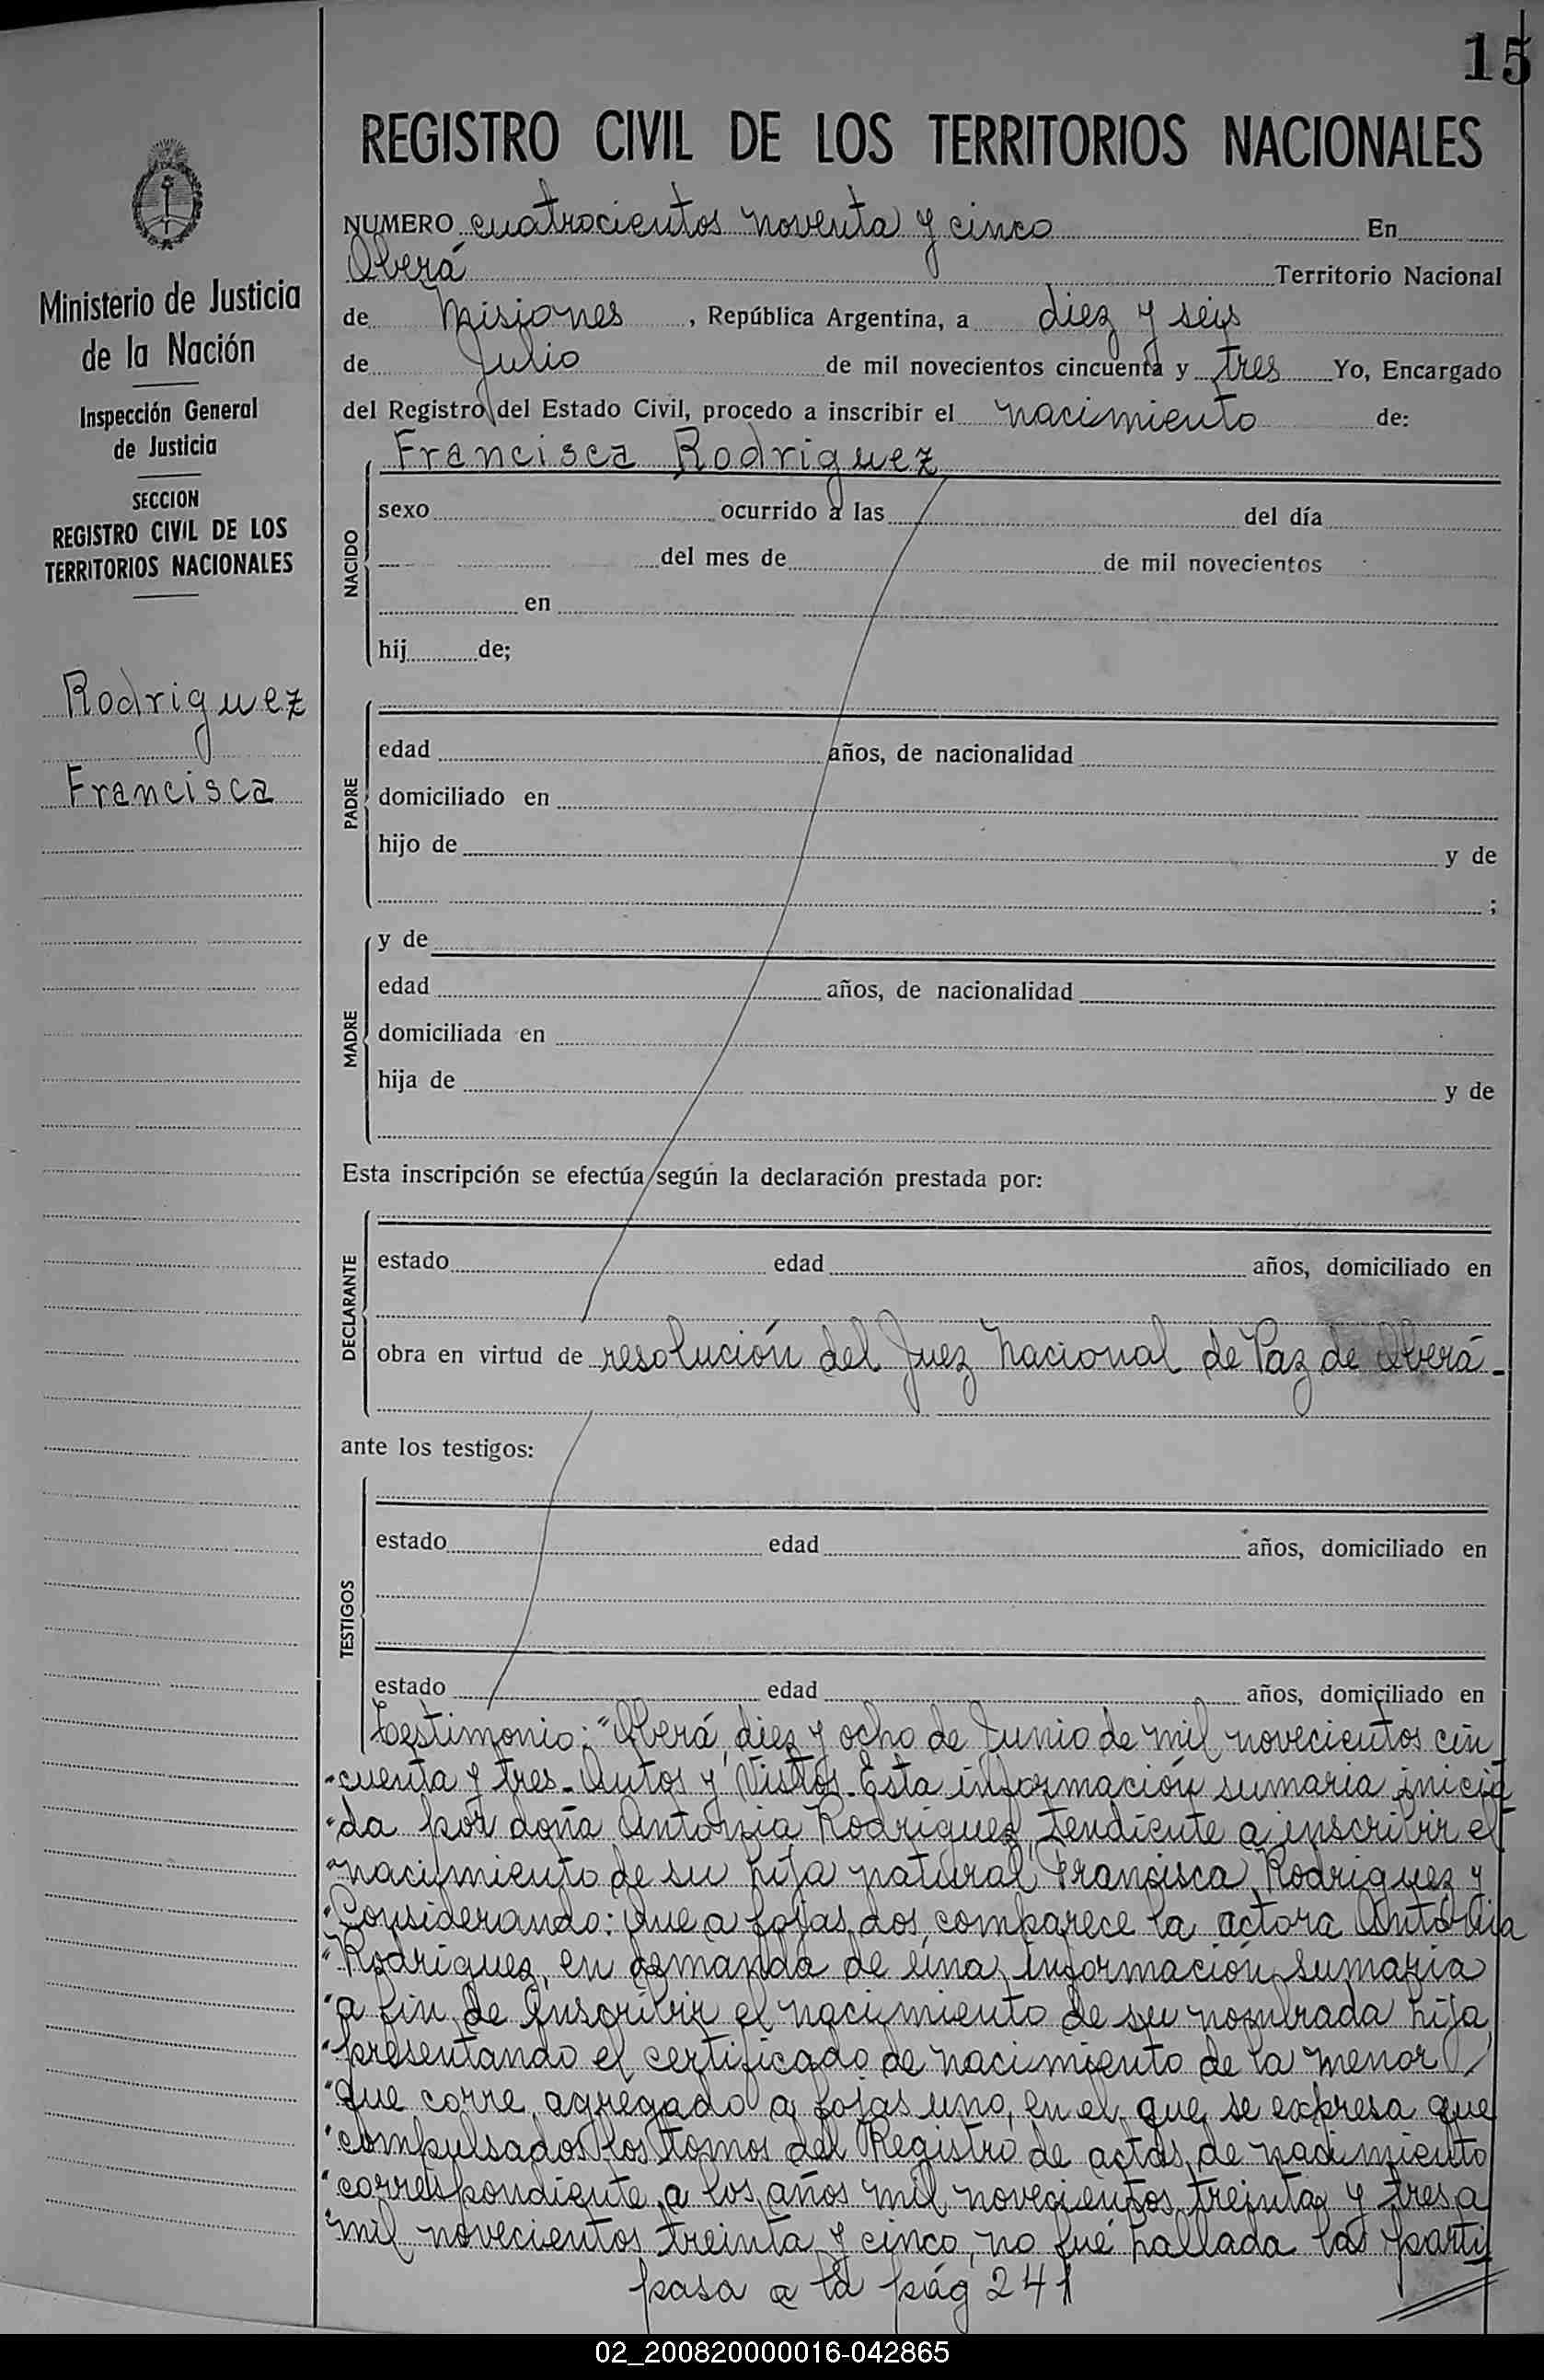 15
REGISTRO CIVIL DE LOS TERRITORIOS NACIONALES
Ministerio de Justicia
de la Nación
Inspección General
de Justicia
SECCION
REGISTRO CIVIL DE LOS
TERRITORIOS NACIONALES
Rodriguez
Francisca
NUMERO cuatrocientos noventa y cinco En
Oberá Territorio Nacional
de Misiones, República Argentina, a diez y seis
de Julio de mil novecientos cincuenta y tres Yo, Encargado
del Registro del Estado Civil, procedo a inscribir el nacimiento de:
Francisca Rodriguez
NACIDO
sexo ocurrido a las del día
del mes de de mil novecientos
en
hij de;
PADRE
edad años, de nacionalidad
domiciliado en
hijo de y de
;
MADRE
y de
edad años, de nacionalidad
domiciliada en
hija de y de
Esta inscripción se efectúa según la declaración prestada por:
DECLARANTE
estado edad años, domiciliado en
obra en virtud de resolución del Juez Nacional de Paz de Oberá-
ante los testigos:
TESTIGOS
estado edad años, domiciliado en
estado edad años, domiciliado en
Testimonio: "Oberá, diez y ocho de Junio de mil novecientos cin
"cuenta y tres- Autos y Vistos- Esta información sumaria inicia
"da por doña Antonia Rodriguez, tendiente a inscribir el
"nacimiento de su hija natural Francisca Rodriguez y
"Considerando: Que a fojas dos, comparece la actora Antonia
"Rodriguez, en demanda de una información sumaria
"a fin de inscribir el nacimiento de su nombrada hija,
"presentando el certificado de nacimiento de la menor
"que corre agregado a fojas uno, en el que se expresa que
"compulsados los tomos del Registro de actas de nacimiento
"correspondiente a los años mil novecientos treinta y tres a
"mil novecientos treinta y cinco, no fué hallada la parti
pasa a la pág 241
02_200820000016-042865